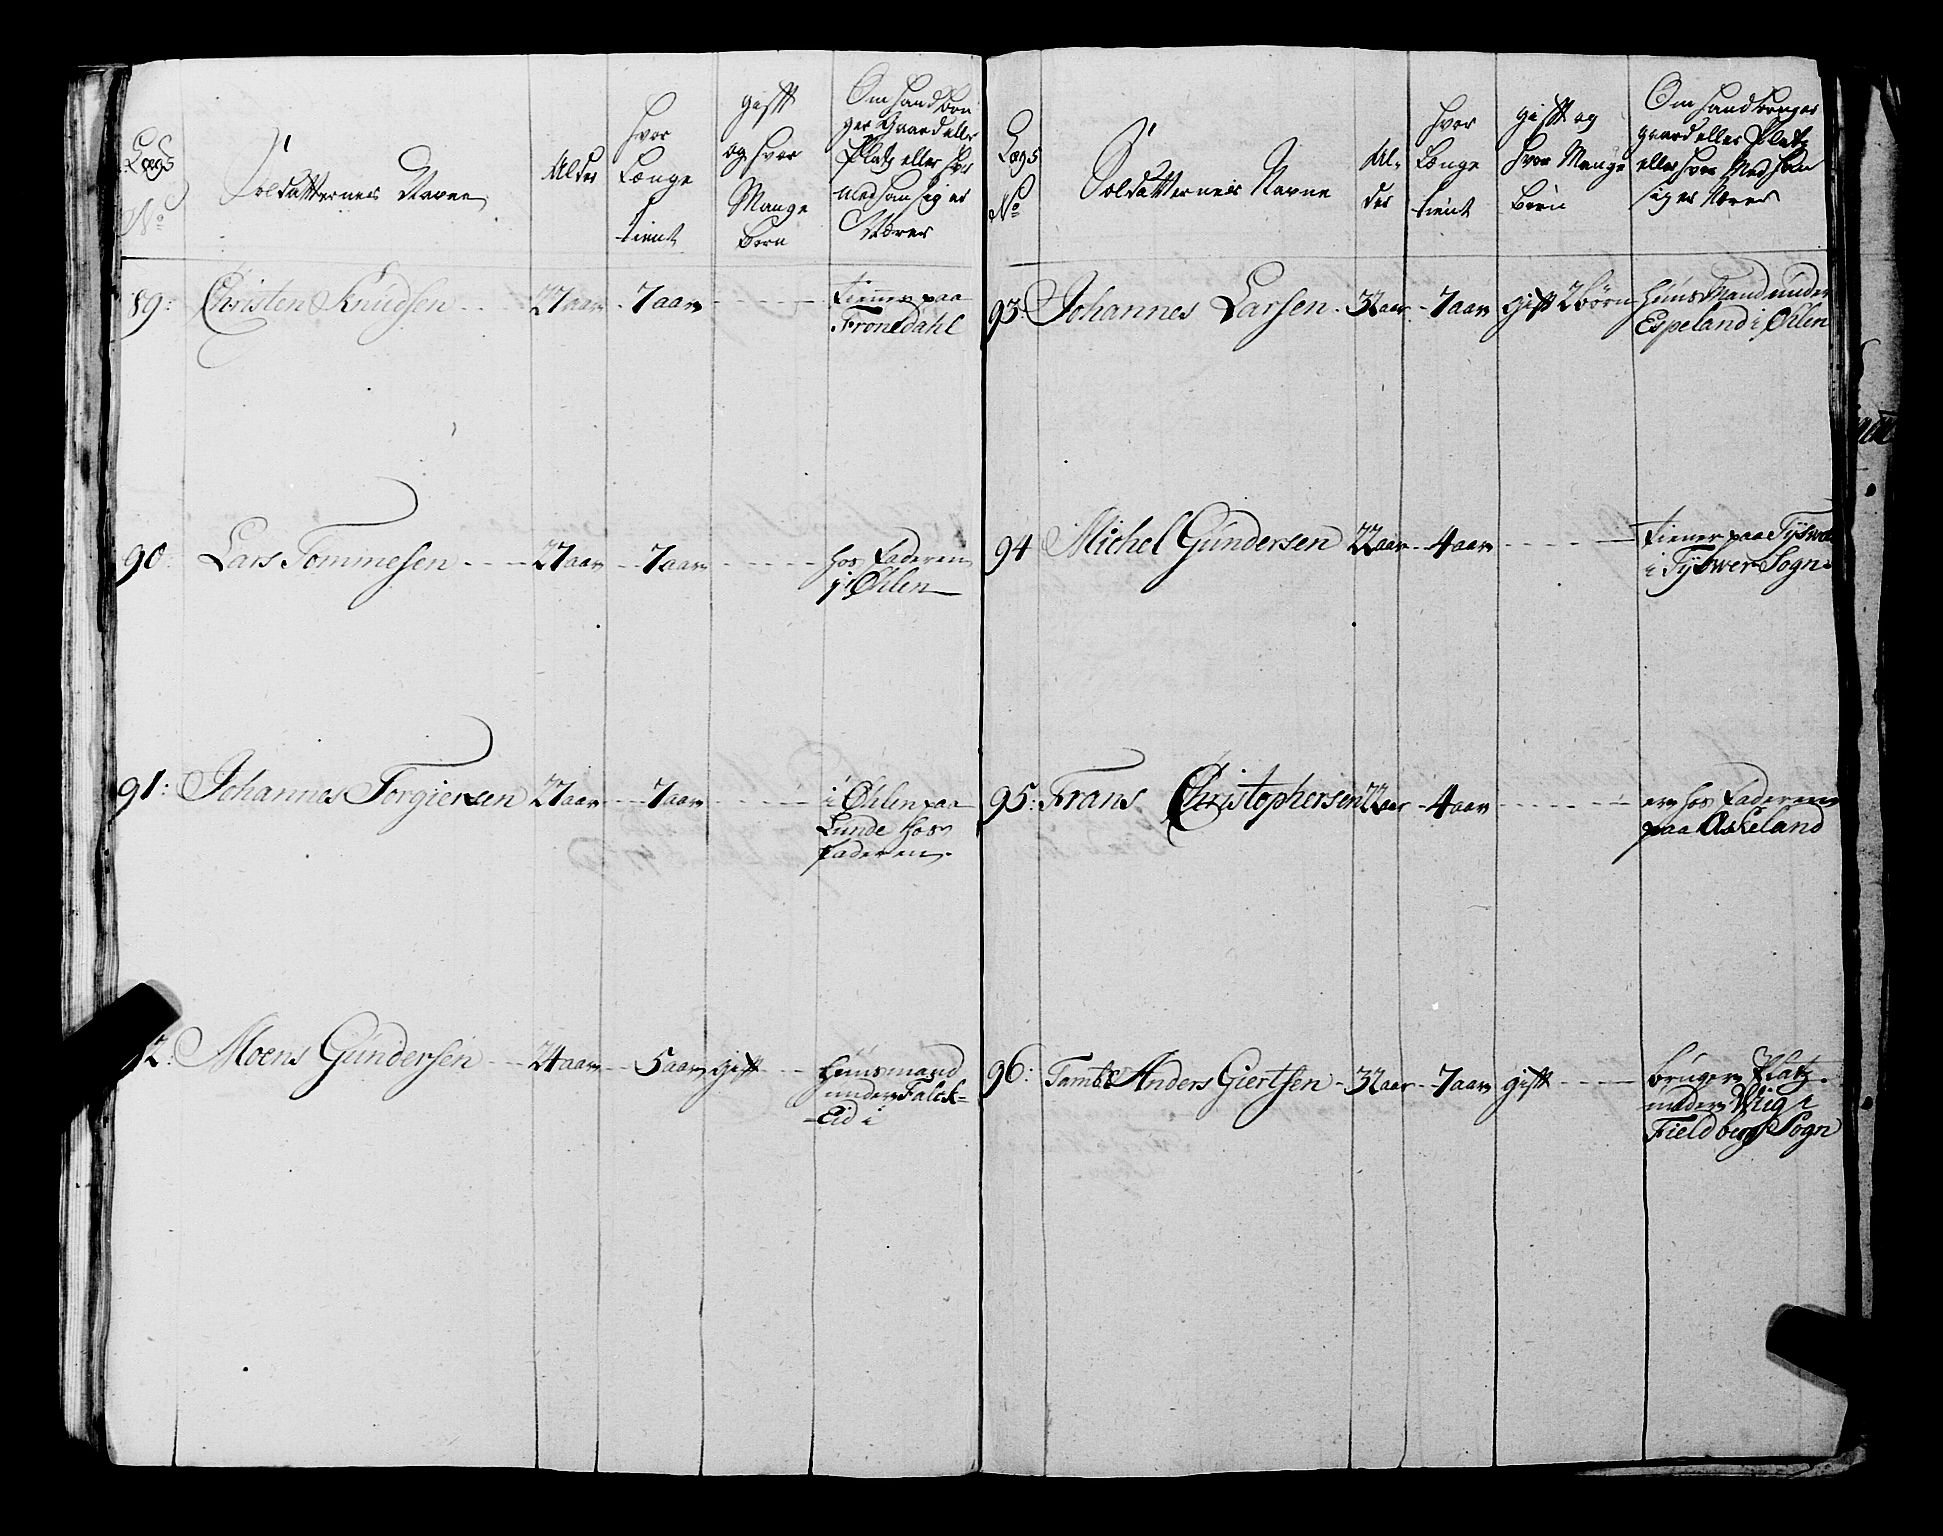 Lægs
No
Soldatternes Navne
Alder
Hvor
Længe
tient
gift
og hvor
Mange
Børn
Om hand brü
ger Gaard eller
Platz eller hvor
med han sig er
Nærer
89: Christen Knudsen 27 aar 7 aar tiener paa
Fronedahl
90: Lars Tommesen 27 aar 7 aar hos Faderen
i Øhlen
91: Johannes Torgiersen 27 aar 7 aar i Øhlen paa
Lunde hos
faderen
2: Moens Gündersen 24 aar 5 aar gift Hüüsmand
under Falck-
Eid i
Lægs
No
Soldatternes Navne
Al-
der
Hvor
Længe
tient
gift og
hvor Mange
Børn
Om hand brüger
gaard eller Platz
eller hvor Med han
sig er Nærer
93: Johannes Larsen 32 aar 7 aar gift 2 børn Hüüs Mand under
Espeland i Øhlen
94 Michel Gündersen 22 aar 4 aar tiener paa Tyswer
i Tyswer Sogn
95: Frans Christophersen 22 aar 4 aar er hos Faderen
paa Askeland
96: Tamb: Anders Giertsen 32 aar 7 aar gift brüger Platz
under Wiig i
Fieldberg Sogn